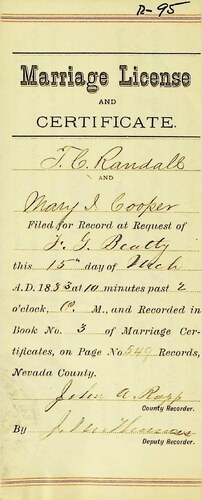 R-95
Marriage License
AND
CERTIFICATE.
T. C. Randall
AND
Mary I Cooper
Filed for Record at Request of
F. G. Beatty
this 15th day of Mch
A.D. 1885 at 10 minutes past 2
o'clock, P. M., and Recorded in
Book No. 3 of Marriage Cer-
tificates, on Page No 549 Records,
Nevada County.
John A Rapp
County Recorder.
By
Deputy Recorder.